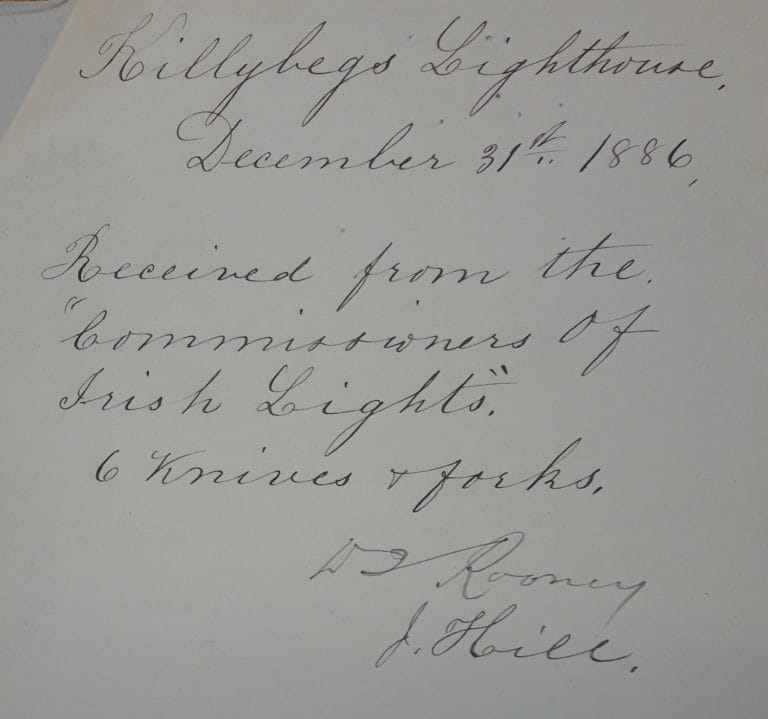 Killybegs Lighthouse,
December 31st. 1886,
Received from the.
"Commissioners Of
Irish Lights".
6 Knives & forks.
Rooney
J. Hill.